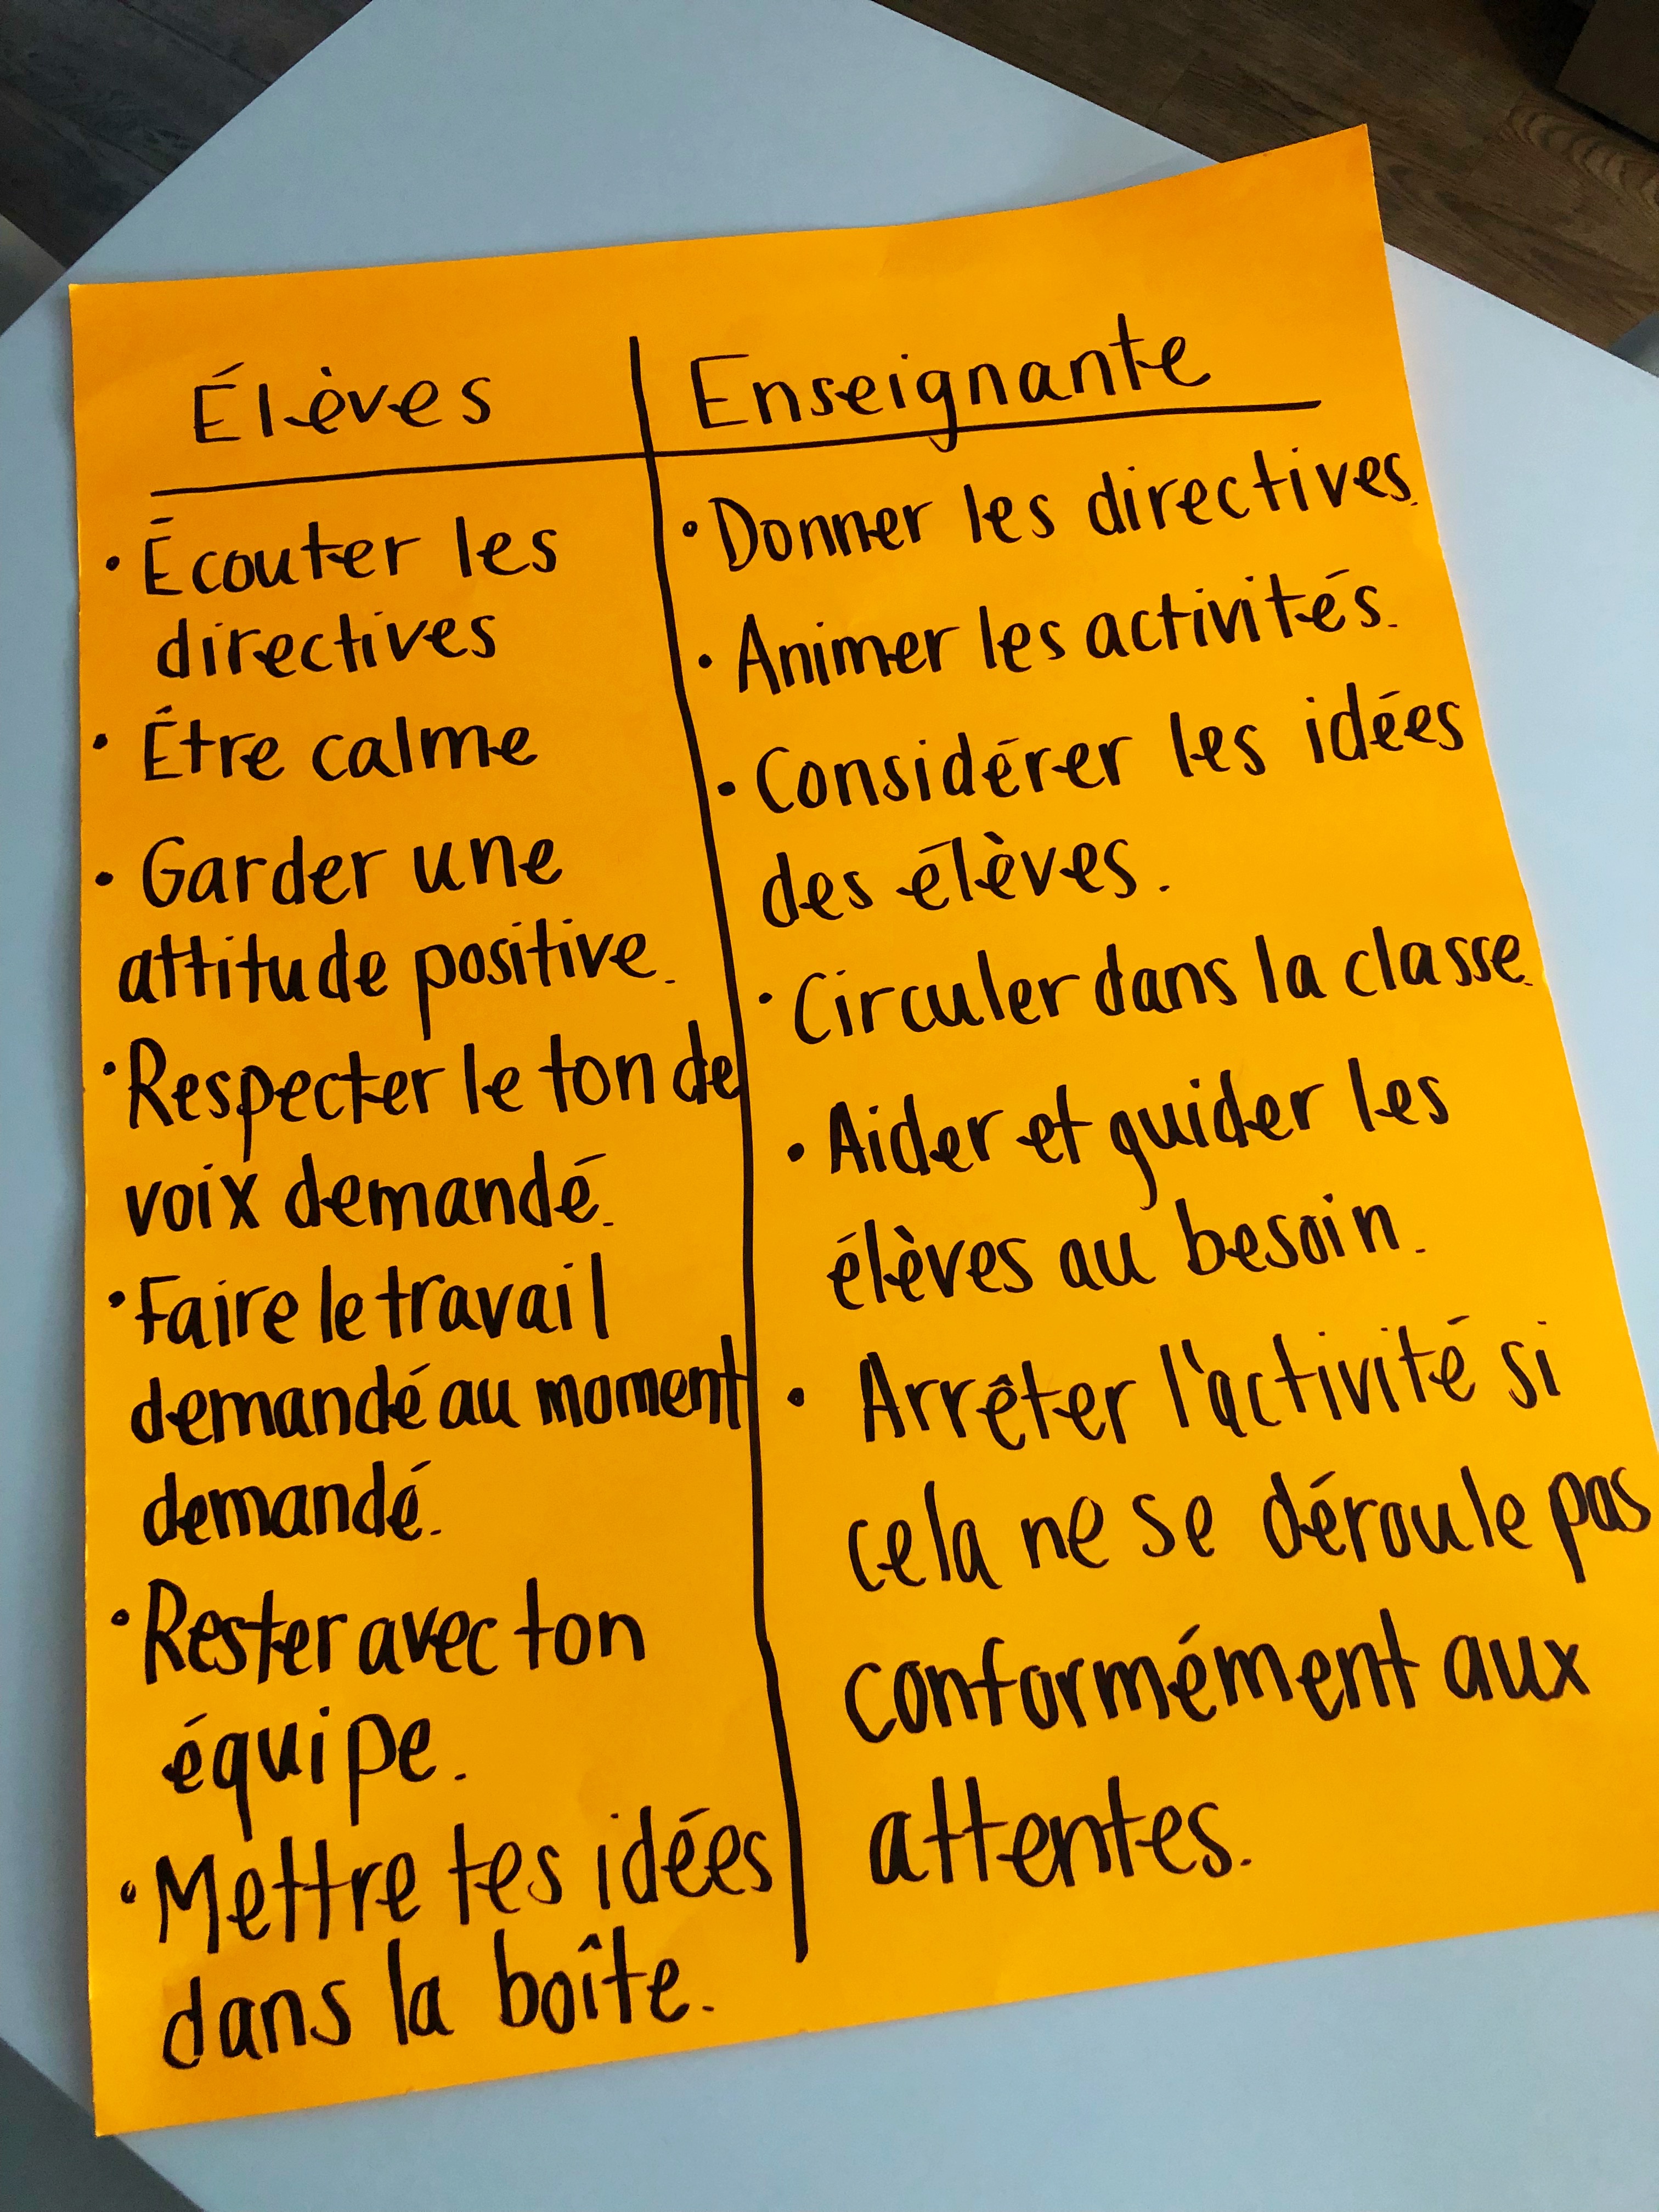 Élèves
Écouter les
directives
Être calme
Garder une
attitude positive.
Respecter le ton de
voix demandé.
Faire le travail
demandé au moment
demandé.
Rester avec ton
équipe.
Mettre tes idées
dans la boîte.
Enseignante
Donner les directives.
Animer les activités.
Considérer les idées
des élèves.
Circuler dans la classe.
Aider et guider les
élèves au besoin.
Arrêter l'activité si
cela ne se déroule pas
conformément aux
attentes.